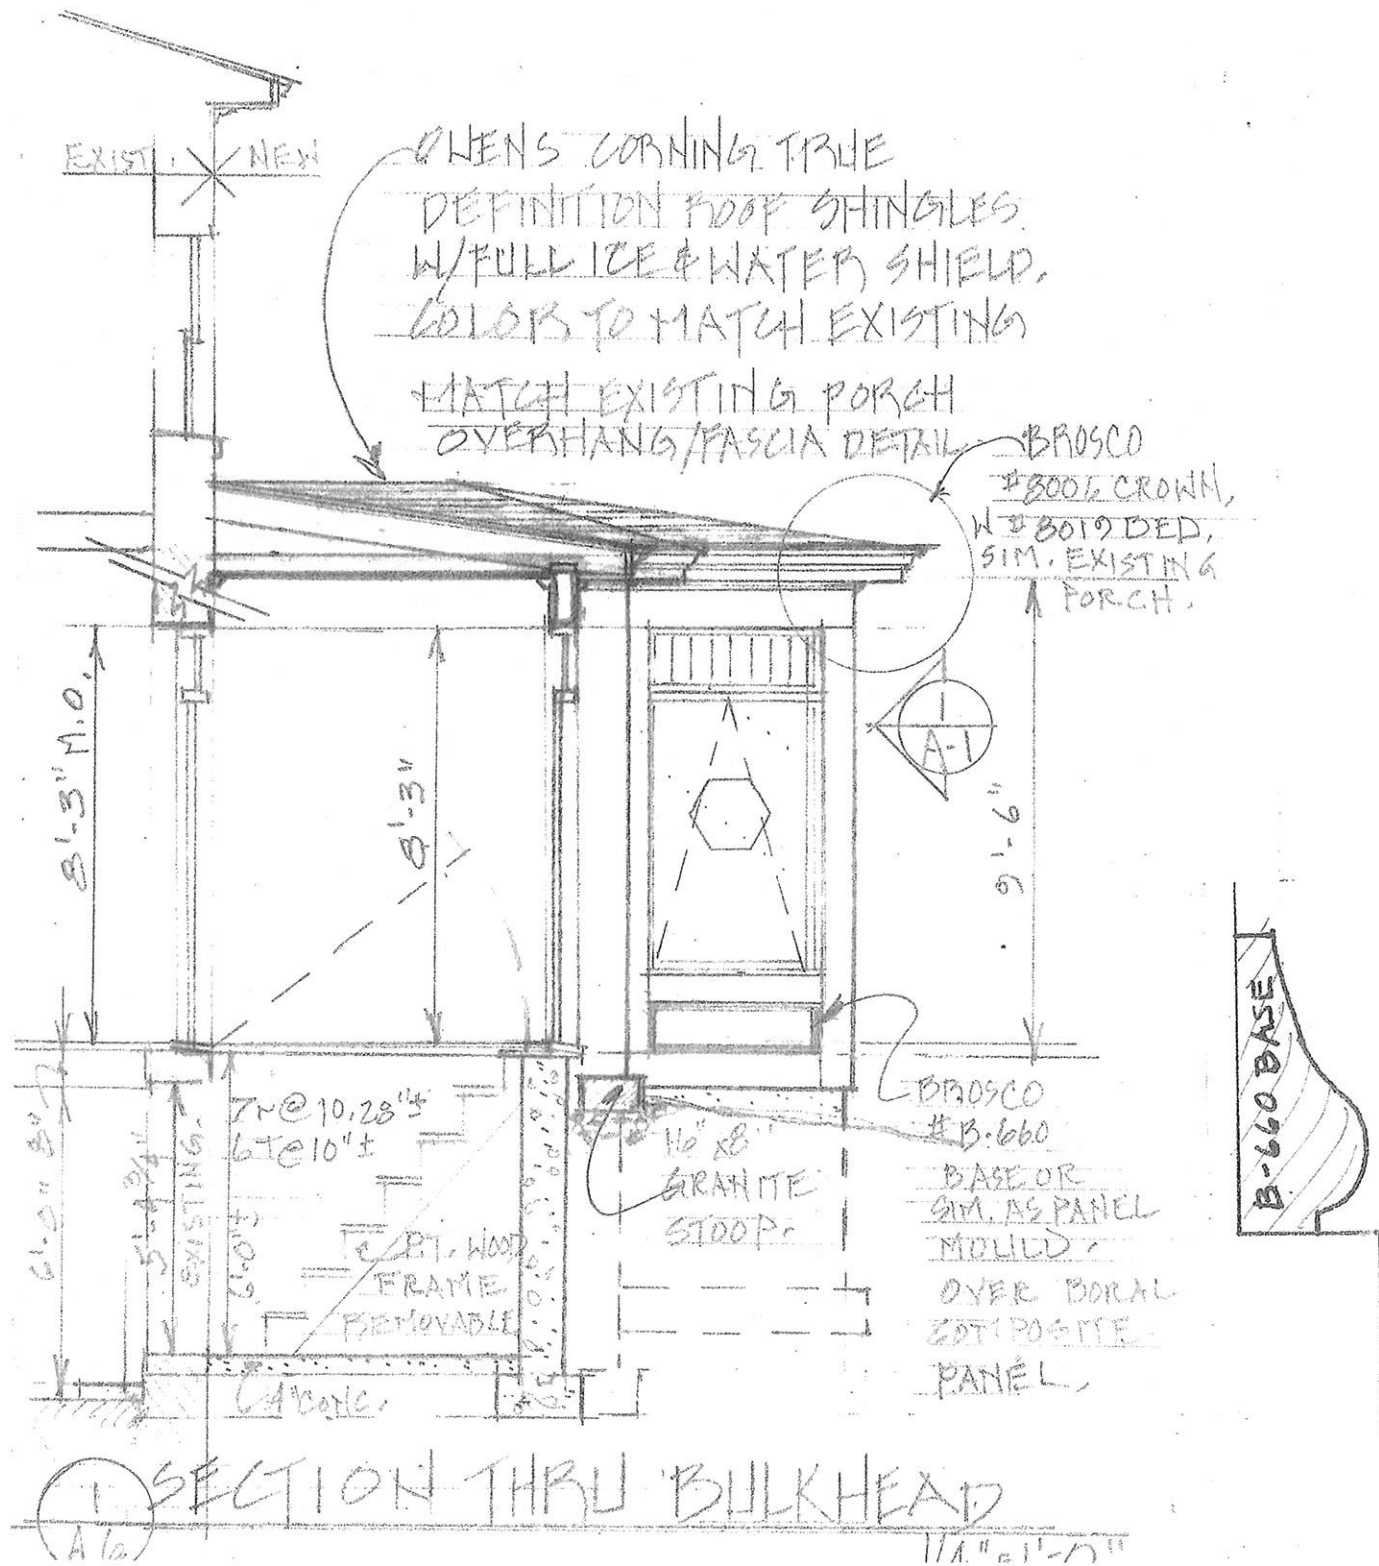 EXIST. NEW
OWENS CORNING TRUE
DEFINITION ROOF SHINGLES.
W/FULL ICE & WATER SHIELD.
COLOR TO MATCH EXISTING
MATCH EXISTING PORCH
OVERHANG/FASCIA DETAIL
BROSCO
#8006 CROWN,
W #8019 BED,
SIM. EXISTING
PORCH.
8'-3" M.O.
8'-3"
A-1
9'-6"
B-660 BASE
7R@10.28"±
6T@10"±
6'-0"
5'-4 3/4"
EXISTING
6'-0"±
P.T. WOOD
FRAME
REMOVABLE
16" x 8"
GRANITE
STOOP.
BROSCO
#B-660
BASE OR
SIM. AS PANEL
MOULD.
OVER BORAL
COMPOSITE
PANEL.
4" CONC.
1
A6
SECTION THRU BULKHEAD
1/4"=1'-0"